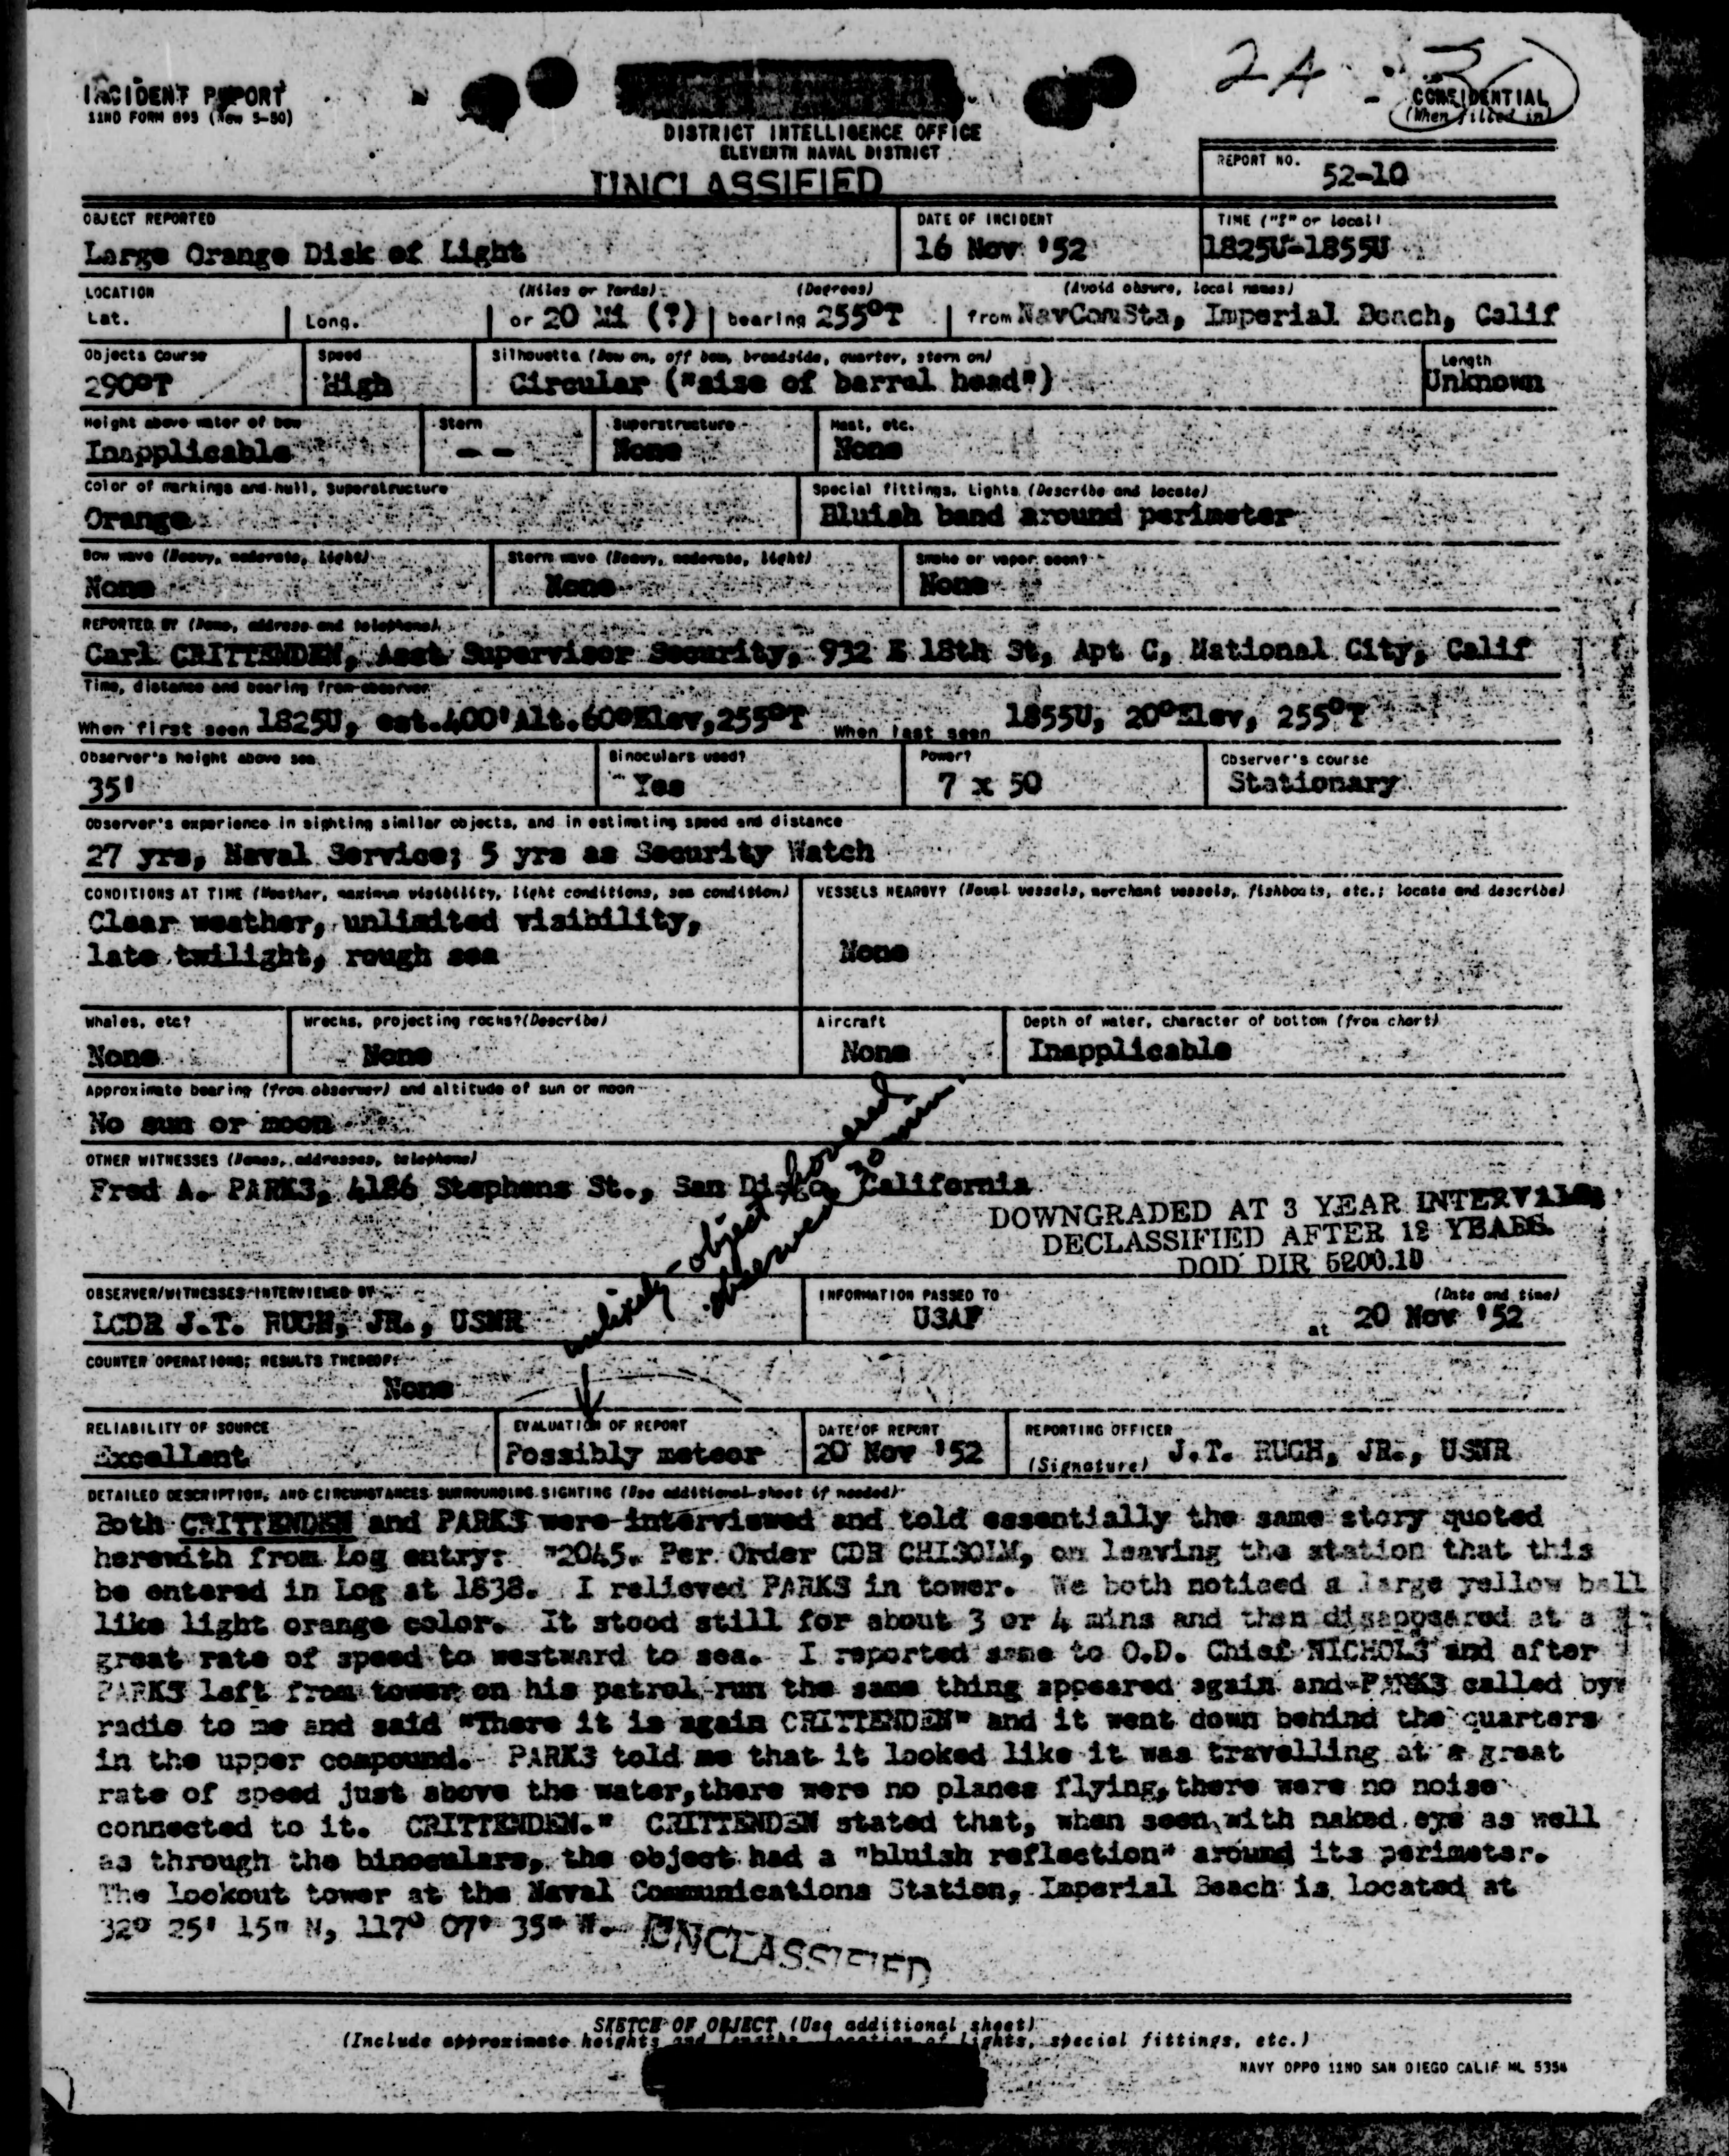 INCIDENT REPORT
11ND FORM 895 (New 5-50)
24
CONFIDENTIAL
(When filled in)
DISTRICT INTELLIGENCE OFFICE
ELEVENTH NAVAL DISTRICT
UNCLASSIFIED
REPORT NO. 52-10
OBJECT REPORTED
Large Orange Disk of Light
DATE OF INCIDENT
16 Nov '52
TIME ("Z" or local)
1825U-1855U
LOCATION
Lat.
Long.
(Miles or Yards)
or 20 Mi (?)
(Degrees)
bearing 255°T
(Avoid obsure, local names)
from NavComSta, Imperial Beach, Calif
Objects Course
290°T
Speed
High
Silhouette (Bow on, off bow, broadside, quarter, stern on)
Circular ("size of barrel head")
Length
Unknown
Height above water of bow
Inapplicable
Stern
--
Superstructure
None
Mast, etc.
None
Color of markings and hull, Superstructure
Orange
Special fittings, Lights (Describe and locate)
Bluish band around perimeter
Bow wave (Heavy, moderate, light)
None
Stern wave (Heavy, moderate, light)
None
Smoke or vapor seen?
None
REPORTED BY (Name, address and telephone)
Carl CRITTENDEN, Asst Supervisor Security, 932 E 18th St, Apt C, National City, Calif
Time, distance and bearing from observer
When first seen 1825U, est.400'Alt.60°Elev,255°T
When last seen 1855U, 20°Elev, 255°T
Observer's height above sea
35'
Binoculars used?
Yes
Power?
7 x 50
Observer's course
Stationary
Observer's experience in sighting similar objects, and in estimating speed and distance
27 yrs, Naval Service; 5 yrs as Security Watch
CONDITIONS AT TIME (Weather, maximum visibility, light conditions, sea condition)
Clear weather, unlimited visibility,
late twilight, rough sea
VESSELS NEARBY? (Naval vessels, merchant vessels, fishboats, etc.; locate and describe)
None
Whales, etc?
None
Wrecks, projecting rocks?(Describe)
None
Aircraft
None
Depth of water, character of bottom (from chart)
Inapplicable
Approximate bearing (from observer) and altitude of sun or moon
No sun or moon
OTHER WITNESSES (Names, addresses, telephone)
Fred A. PARKS, 4186 Stephens St., San Diego, California
unlikely - object hovered,
observed 30 min
DOWNGRADED AT 3 YEAR INTERVALS;
DECLASSIFIED AFTER 12 YEARS.
DOD DIR 5200.10
OBSERVER/WITNESSES INTERVIEWED BY
LCDR J.T. RUGH, JR., USNR
INFORMATION PASSED TO
USAF
(Date and time)
at 20 Nov '52
COUNTER OPERATIONS; RESULTS THEREOF:
None
RELIABILITY OF SOURCE
Excellent
EVALUATION OF REPORT
Possibly meteor
DATE OF REPORT
20 Nov '52
REPORTING OFFICER
(Signature) J.T. RUGH, JR., USNR
DETAILED DESCRIPTION, AND CIRCUMSTANCES SURROUNDING SIGHTING (Use additional sheet if needed)
Both CRITTENDEN and PARKS were interviewed and told essentially the same story quoted
herewith from Log entry: "2045. Per Order CDR CHISOLM, on leaving the station that this
be entered in Log at 1838. I relieved PARKS in tower. We both noticed a large yellow ball
like light orange color. It stood still for about 3 or 4 mins and then disappeared at a
great rate of speed to westward to sea. I reported same to O.D. Chief NICHOLS and after
PARKS left from tower on his patrol run the same thing appeared again and PARKS called by
radio to me and said "There it is again CRITTENDEN" and it went down behind the quarters
in the upper compound. PARKS told me that it looked like it was travelling at a great
rate of speed just above the water, there were no planes flying, there were no noise
connected to it. CRITTENDEN." CRITTENDEN stated that, when seen with naked eye as well
as through the binoculars, the object had a "bluish reflection" around its perimeter.
The lookout tower at the Naval Communications Station, Imperial Beach is located at
32° 25' 15" N, 117° 07' 35" W.
UNCLASSIFIED
SKETCH OF OBJECT (Use additional sheet)
(Include approximate heights and lengths, location of lights, special fittings, etc.)
NAVY DPPO 11ND SAN DIEGO CALIF